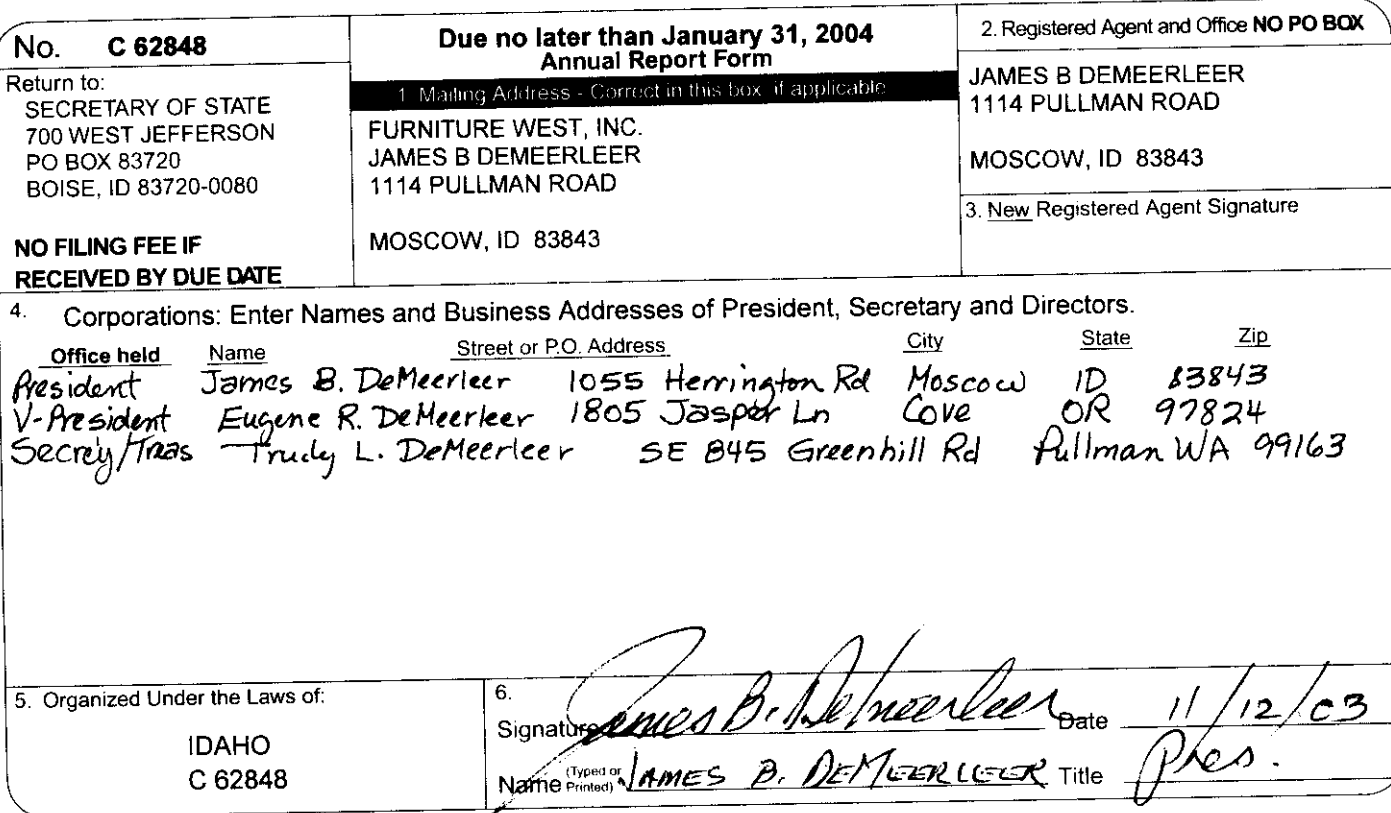 No. C 62848
Return to:
SECRETARY OF STATE
700 WEST JEFFERSON
PO BOX 83720
BOISE, ID 83720-0080
NO FILING FEE IF
RECEIVED BY DUE DATE
Due no later than January 31, 2004
Annual Report Form
1. Mailing Address - Correct in this box, if applicable
FURNITURE WEST, INC.
JAMES B DEMEERLEER
1114 PULLMAN ROAD
MOSCOW, ID 83843
2. Registered Agent and Office NO PO BOX
JAMES B DEMEERLEER
1114 PULLMAN ROAD
MOSCOW, ID 83843
3. New Registered Agent Signature
4. Corporations: Enter Names and Business Addresses of President, Secretary and Directors.
Office held Name Street or P.O. Address City State Zip
President James B. DeMeerleer 1055 Herrington Rd Moscow ID 83843
V-President Eugene R. DeMeerleer 1805 Jasper Ln Cove OR 97824
Secrey/Treas Trudy L. DeMeerleer SE 845 Greenhill Rd Pullman WA 99163
5. Organized Under the Laws of:
IDAHO
C 62848
6.
Signature James B. DeMeerleer Date 11/12/03
Name (Typed or Printed) JAMES B. DEMEERLEER Title Pres.